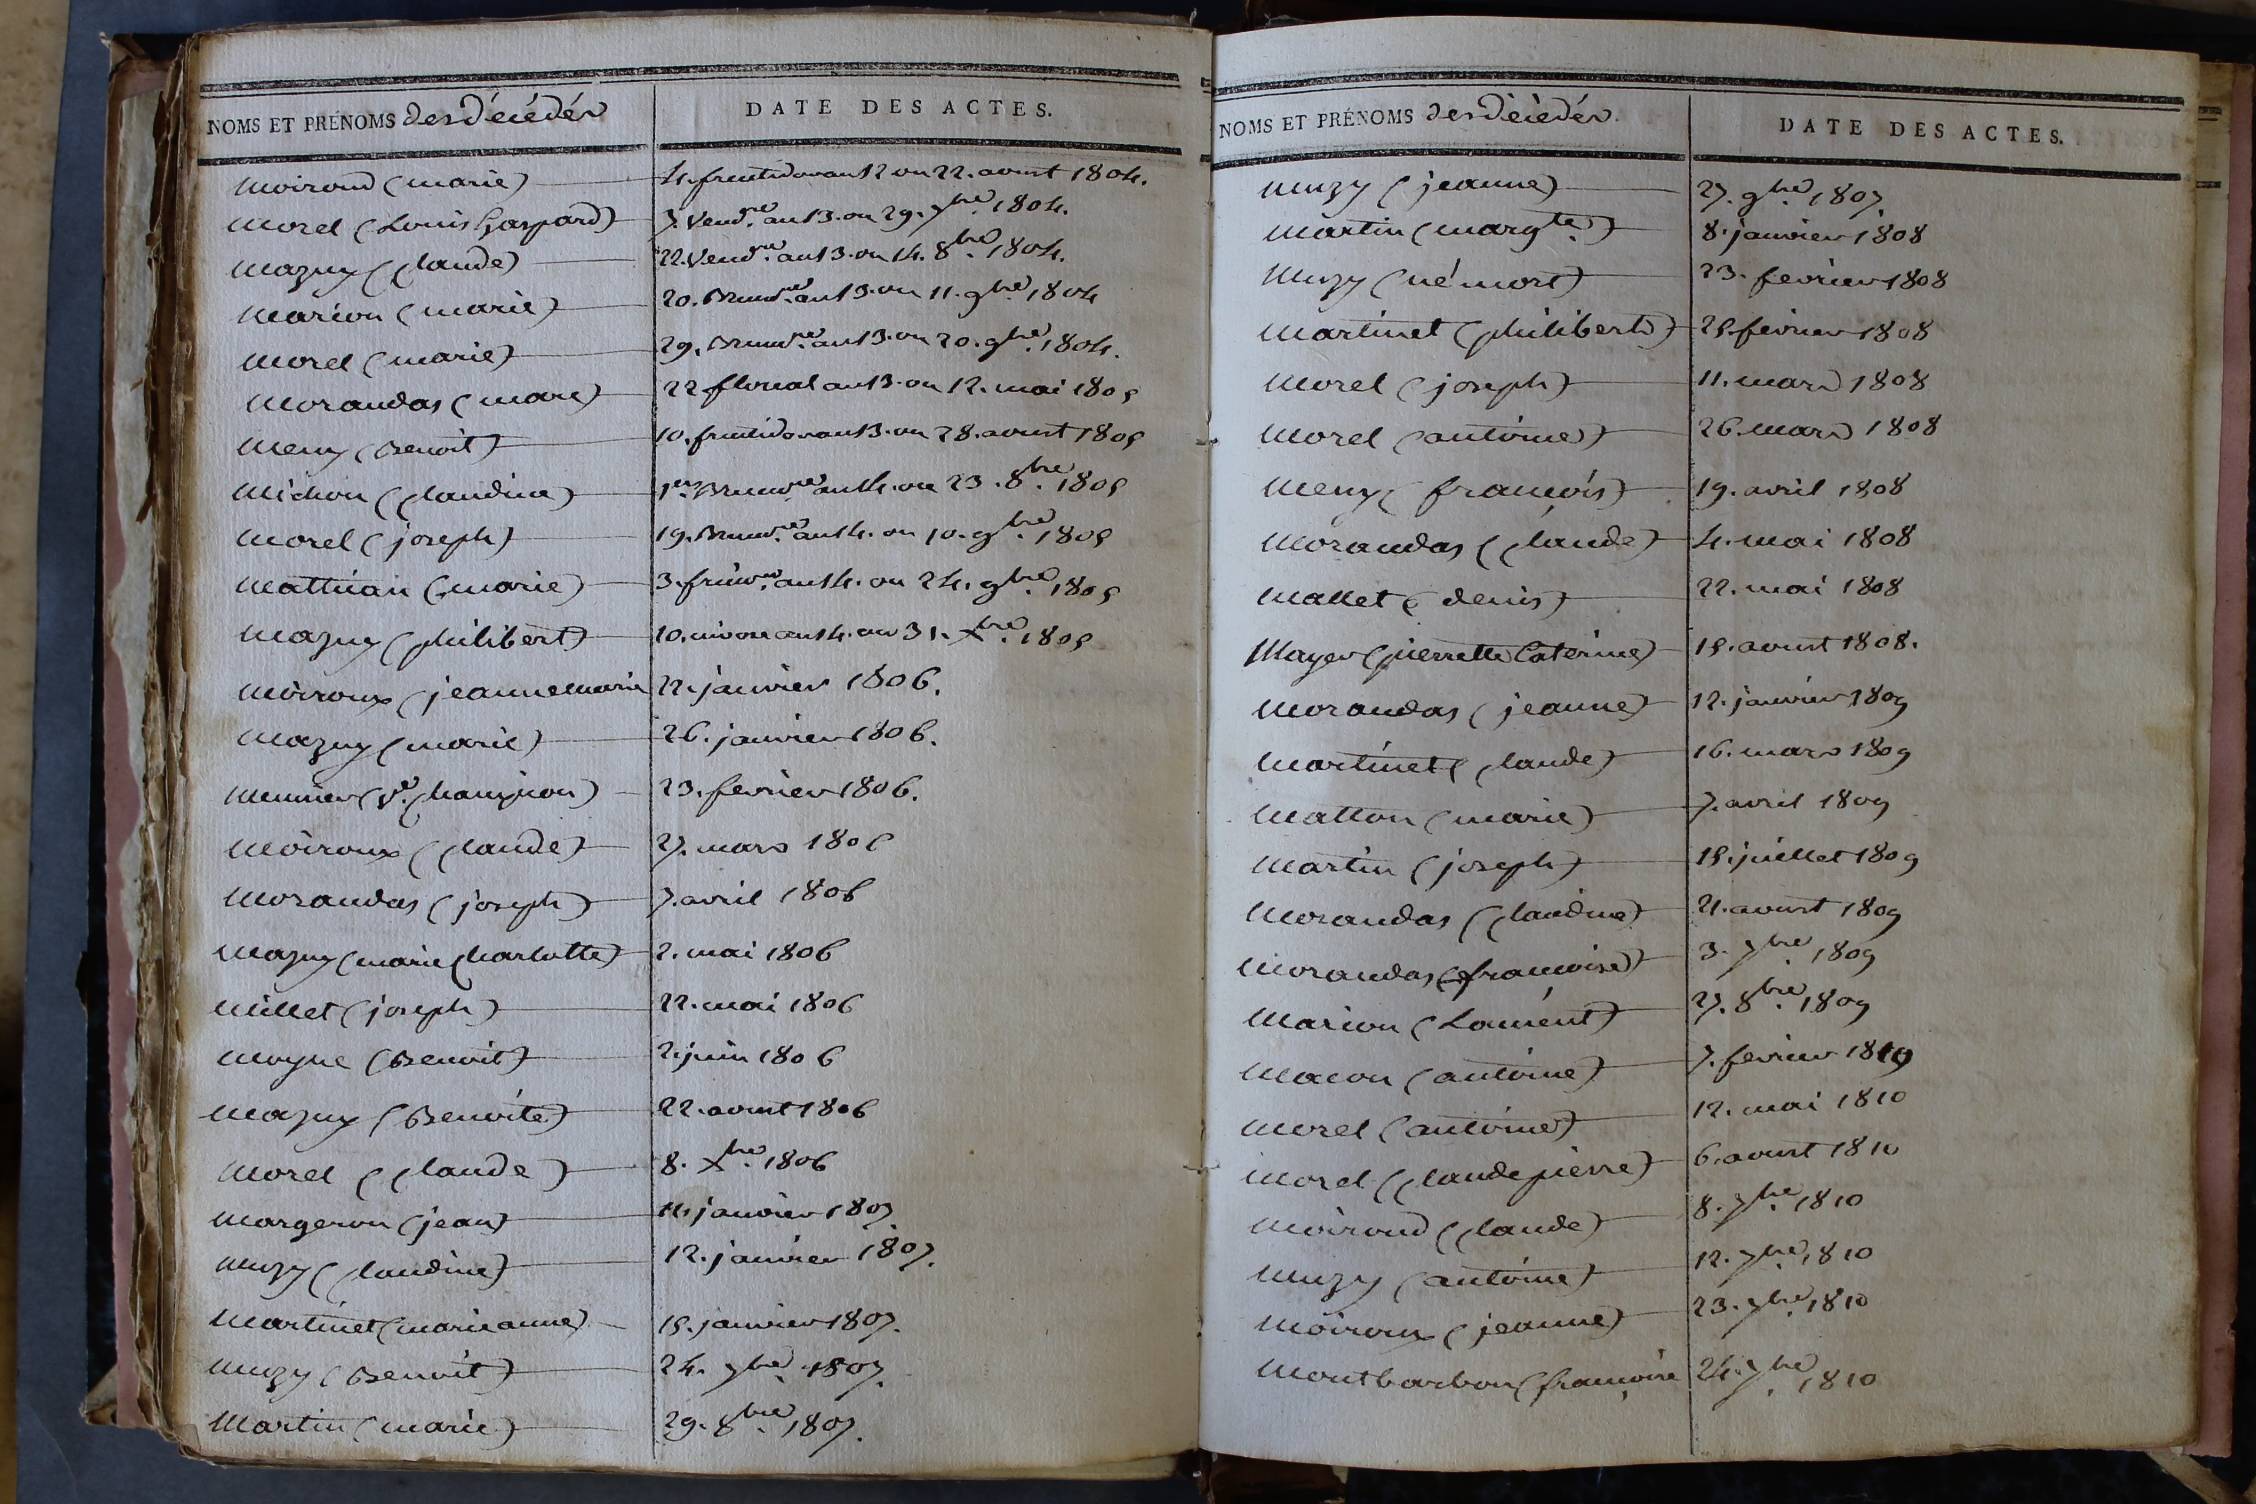 NOMS ET PRÉNOMS des décédés DATE DES ACTES.
Moiroud (marie) 4. fructidor an 12 ou 22. aoust 1804.
Morel (Louis Gaspard) 7. Vend.re an 13. ou 29. 7bre. 1804.
Mazuy (Claude) 22. Vend.re an 13. ou 14. 8bre. 1804.
Marion (marie) 20. Brum.re an 13. ou 11. 9bre. 1804
Morel (marie) 29. Brum.re an 13. ou 20. 9bre. 1804.
Morandas (marc) 22 floreal an 13. ou 12. mai 1805
Meny (Benoit) 10. fructidor an 13. ou 28. aoust 1805
Michon (Claudine) 1er. Brum.re an 14. ou 23. 8bre. 1805
Morel (joseph) 19. Brum.re an 14. ou 10. 9bre. 1805
Mathian (marie) 3. frim.re an 14. ou 24. 9bre. 1805
Mazuy (philibert) 10. nivose an 14. ou 31. Xbre. 1805
Moiroux (jeanne marie 22. janvier 1806.
Mazuy (marie) 26. janvier 1806.
Meunier (Ve. ) 23. fevrier 1806.
Moiroux (Claude) 27. mars 1806
Morandas (joseph) 7. avril 1806
Mazuy (marie Charlotte) 2. mai 1806
Millet (joseph) 22. mai 1806
Moyne (Benoit) 2. juin 1806
Mazuy (Benoite) 22. aoust 1806
Morel (Claude) 8. Xbre. 1806
Margeron (jean) janvier 1807.
Muzy (Claudine) 12. janvier 1807.
Martinet (marie anne) 15. janvier 1807.
Muzy (Benoit) 24. 7bre. 1807.
Martin (marie) 29. 8bre. 1807.
NOMS ET PRÉNOMS des décédés. DATE DES ACTES.
Muzy (jeanne) 27. 9bre. 1807.
Martin (margte.) 8. janvier 1808
Muzy (né mort) 23. fevrier 1808
Martinet (philibert) 25. fevrier 1808
Morel (joseph) 11. mars 1808
Morel (antoine) 26. mars 1808
Meny (françois) 19. avril 1808
Morandas (Claude) 4. mai 1808
Mallet (denis) 22. mai 1808
Mayer (pierrette Caterine) 15. aoust 1808.
Morandas (jeanne) 12. janvier 1809
Martinet (Claude) 16. mars 1809
Matton (marie) 7. avril 1809
Martin (joseph) 15. juillet 1809
Morandas (Claudine) 21. aoust 1809
Morandas (françoise) 3. 7bre. 1809
Marion (Laurent) 27. 8bre. 1809
Macon (antoine) 7. fevrier 1810
Morel (antoine) 12. mai 1810
Morel (Claude pierre) 6. aoust 1810
Moiroud (Claude) 8. 7bre. 1810
Muzy (antoine) 12. 7bre. 1810
Moiroux (jeanne) 23. 7bre. 1810
Montbarbon (françoise 24. 7bre. 1810